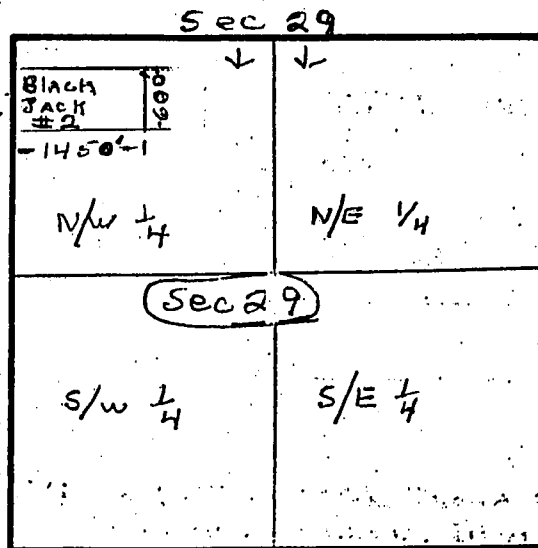 Sec 29
↓ ↓
BLACK
JACK
#2
-600-
-1450'-1
N/W 1/4
N/E 1/4
Sec 29
S/W 1/4
S/E 1/4